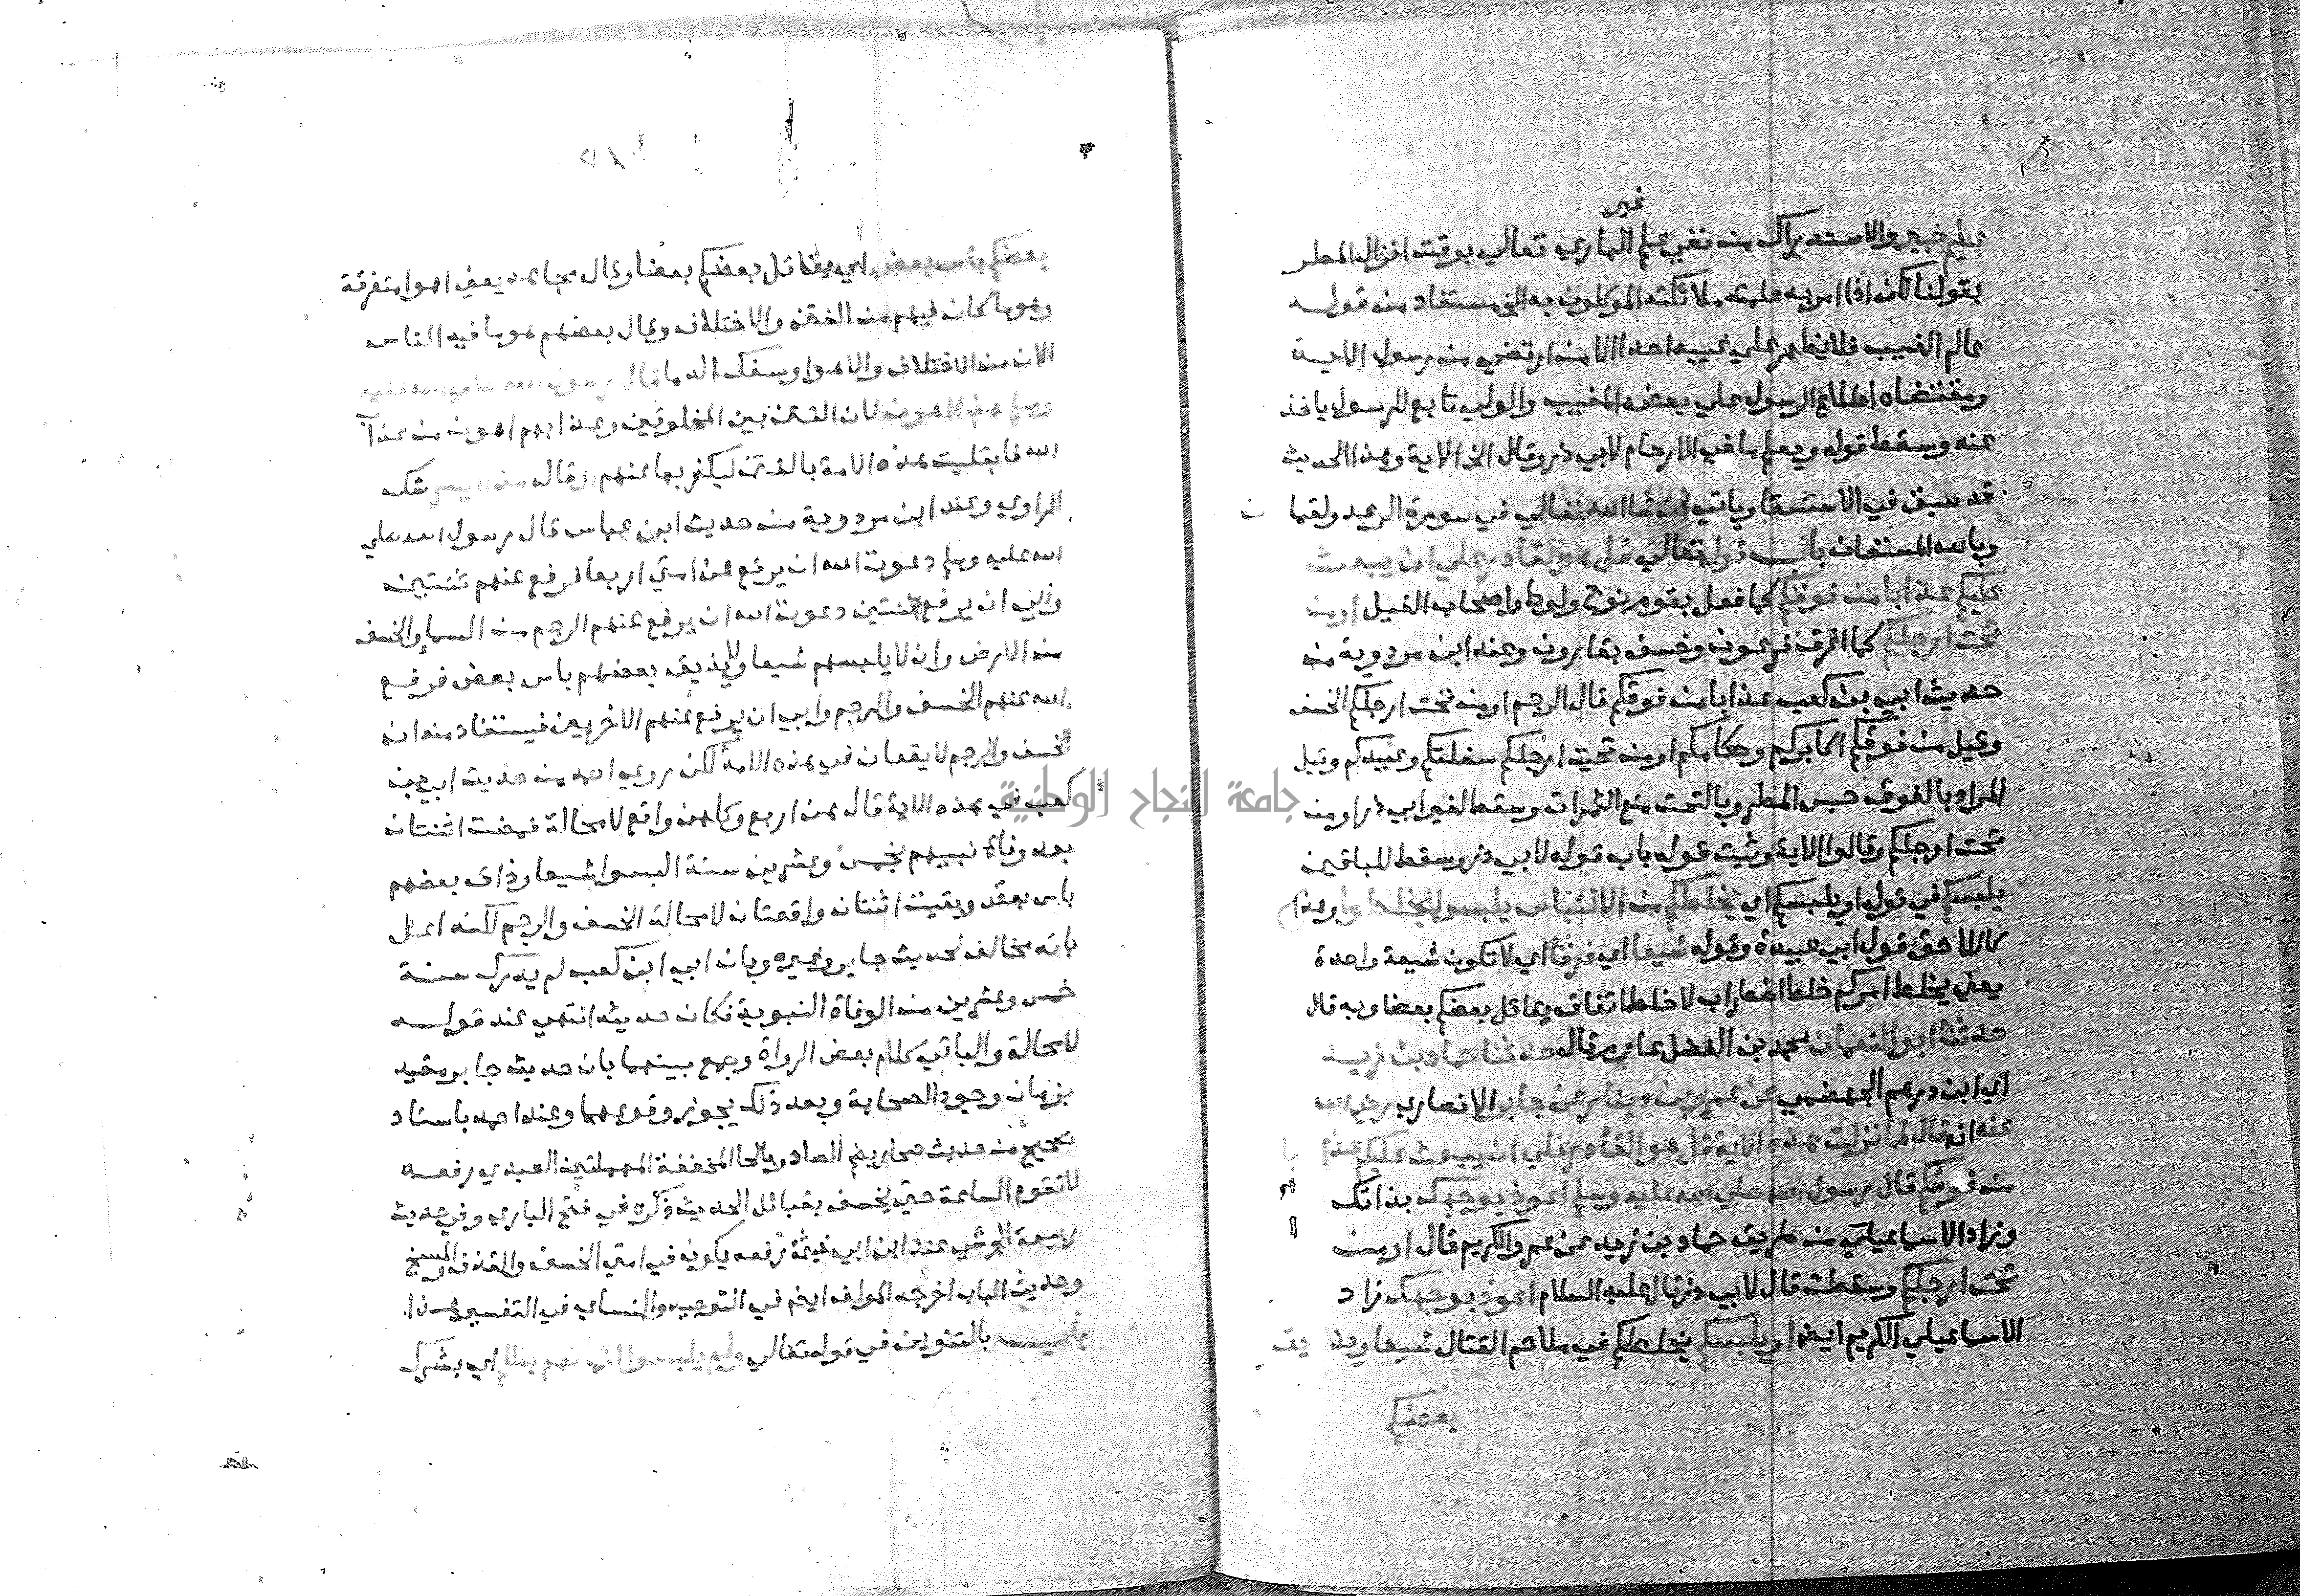 غير
عليم خبير والاستدراك من نفي علم الباري تعالي بوقت انزال المطر
بقولنا لكن اذا امر به علمته ملائكته الموكلون به الخ مستفاد من قوله
عالم الغيب فلا يظهر علي غيبه احدا الا من ارتضي من رسول الاية
ومقتضاه اطلاع الرسول علي بعض المغيب والولي تابع للرسول ياخذ
عنه وسقط قوله ويعلم ما في الارحام لابي ذر وقال الخ الاية وهذا الحديث
قد سبق في الاستسقا وياتي ان شا الله تعالي في سورة الرعد ولقمان
وبالله المستعان باب قوله تعالي قل هو القادر علي ان يبعث
عليكم عذابا من فوقكم كما فعل بقوم نوح ولوط واصحاب الفيل او من
تحت ارجلكم كما اغرق فرعون وخسف بقارون وعند ابن مردوية من
حديث ابي بن كعب عذابا من فوقكم قال الرجم او من تحت ارجلكم الخسف
وقيل من فوقكم اكابركم وحكامكم او من تحت ارجلكم سفلتكم وعبيدكم وقيل
المراد بالفوق حبس المطر وبالتحت منع الثمرات وسقط لغير ابي ذر او من
تحت ارجلكم وقالوا الاية وثبت قوله باب قوله لابي ذر وسقط للباقين
يلبسكم في قوله او يلبسكم اي يخلطكم من الالتباس يلبسوا يخلطوا وهذا
كاللاحق قول ابي عبيدة وقوله شيعا اي فرقا اي لا تكون شيعة واحدة
يعني يخلط امركم خلط اضطراب لا خلط اتفاق يقاتل بعضكم بعضا وبه قال
حدثنا ابو النعمان محمد بن الفضل عارم قال حدثنا حماد بن زيد
اي ابن درهم الجهضمي عن عمرو بن دينار عن جابر الانصاري رضي الله
عنه انه قال لما نزلت هذه الاية قل هو القادر علي ان يبعث عليكم عذابا
من فوقكم قال رسول الله صلي الله عليه وسلم اعوذ بوجهك بذاتك
وزاد الاسماعيلي من طريق حماد بن زيد عن عمرو الكريم قال او من
تحت ارجلكم وسقطت قال لابي ذر قال عليه السلام اعوذ بوجهك زاد
الاسماعيلي الكريم ايضا او يلبسكم يخلطكم في ملاحم القتال شيعا ويذيق
بعضكم
بعضكم باس بعض اي يقاتل بعضكم بعضا وقال مجاهد يعني اهوا متفرقة
وهو ما كان فيهم من الفتن والاختلاف وقال بعضهم هو ما فيه الناس
الان من الاختلاف والاهوا وسفك الدما قال رسول الله صلي الله عليه
وسلم هذا اهون لان الفتن بين المخلوقين وعذابهم اهون من عذاب
الله فابتليت هذه الامة بالفتن ليكفر بها عنهم او قال هذا ايسر شك
الراوي وعند ابن مردوية من حديث ابن عباس قال رسول الله صلي
الله عليه وسلم دعوت الله ان يرفع عن امتي اربعا فرفع عنهم ثنتين
وابي ان يرفع ثنتين دعوت الله ان يرفع عنهم الرجم من السما والخسف
من الارض وان لا يلبسهم شيعا ولا يذيق بعضهم باس بعض فرفع
الله عنهم الخسف والرجم وابي ان يرفع عنهم الاخريين فيستفاد منه ان
الخسف والرجم لا يقعان في هذه الامة لكن روي احمد من حديث ابي بن
كعب في هذه الاية قال هن اربع وكلهن واقع لا محالة فمضت اثنتان
بعد وفاة نبيهم بخمس وعشرين سنة البسوا شيعا وذاق بعضهم
باس بعض وبقيت اثنتان واقعتان لا محالة الخسف والرجم لكنه اعل
بانه مخالف لحديث جابر وغيره وبان ابي ابن كعب لم يدرك سنة
خمس وعشرين من الوفاة النبوية فكان حديثه انتهي عند قوله
لا محالة والباقي كلام بعض الرواة وجمع بينهما بان حديث جابر مقيد
بزمان وجود الصحابة وبعد ذلك يجوز وقوعهما وعند احمد باسناد
صحيح من حديث صحار بضم الصاد وبالحا المخففة المهملتين العبدي رفعه
لا تقوم الساعة حتي يخسف بقبائل الحديث ذكره في فتح الباري وفي حديث
ربيعة الجرشي عند ابن ابي خيثمة رفعه يكون في امتي الخسف والقذف والمسخ
وحديث الباب اخرجه المولف ايضا في التوحيد والنساي في التفسير هذا
باب بالتنوين في قوله تعالي ولم يلبسوا ايمانهم بظلم اي بشرك
جامعة النجاح الوطنية